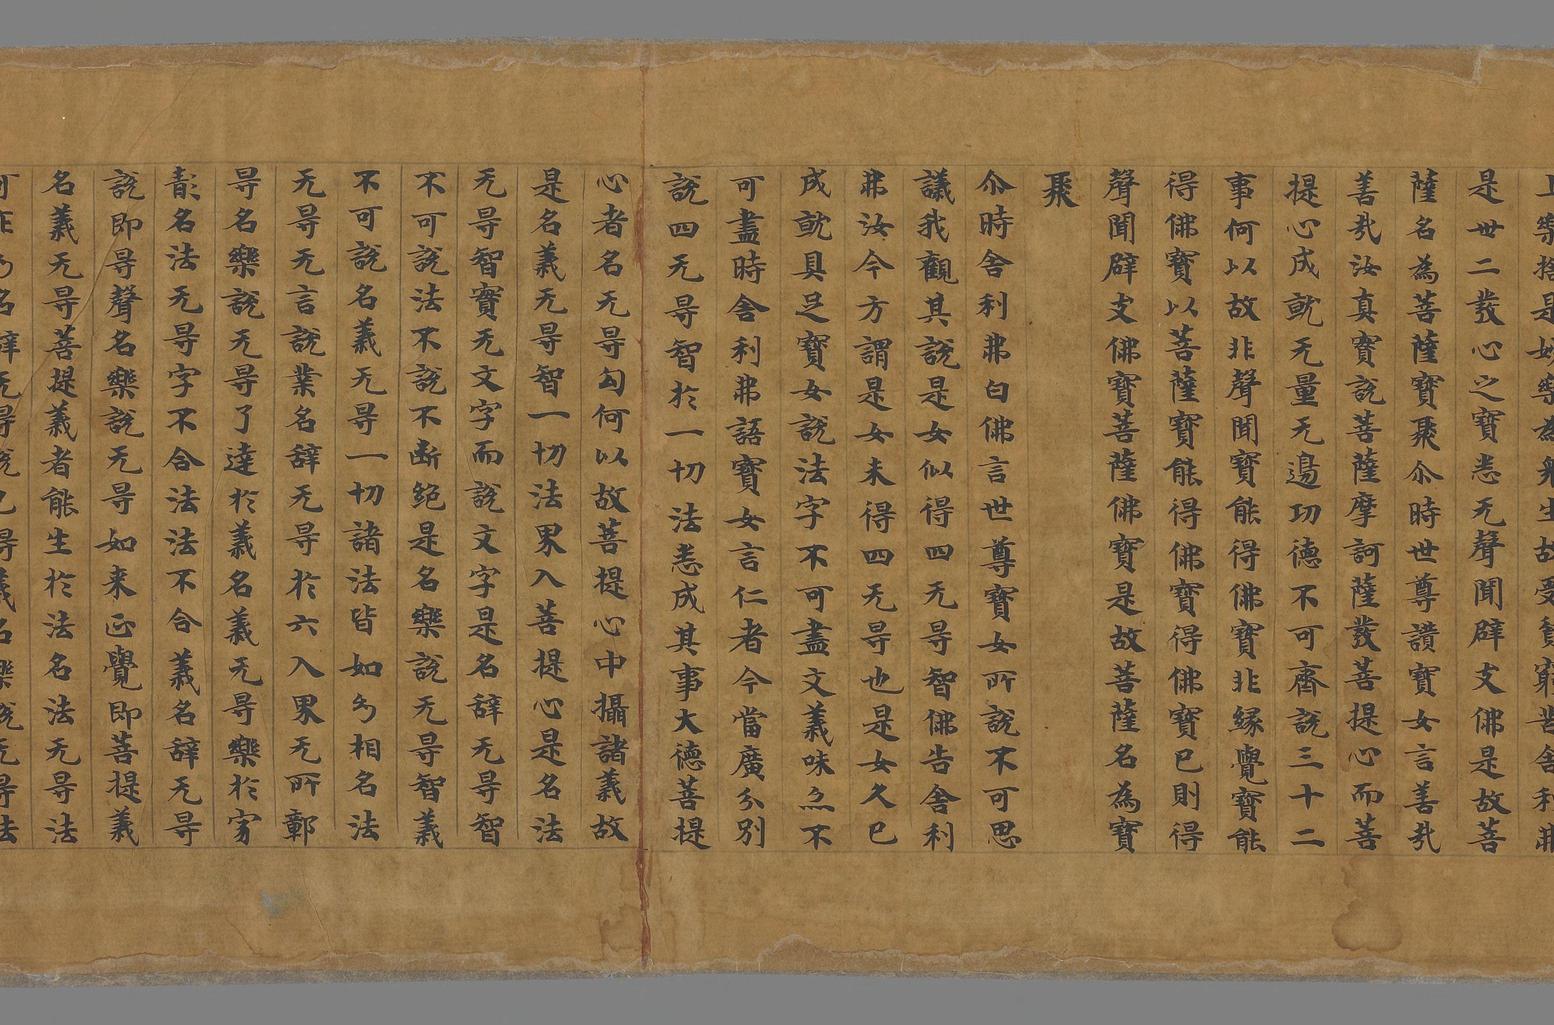 樂捨是妙為眾生故受貧窮苦舍利弗
是世二發心之寶悉无聲聞辟支佛是故菩
薩名為菩薩寶聚尒時世尊讚寶女言善哉
善哉汝真寶說菩薩摩訶薩發菩提心而菩
提心成就无量无邊功德不可齊說三十二
事何以故非聲聞寶能得佛寶非緣覺寶能
得佛寶以菩薩寶能得佛寶得佛寶已則得
聲聞辟支佛寶菩薩佛寶是故菩薩名為寶
聚
尒時舍利弗白佛言世尊寶女所說不可思
議我觀其說是女似得四无㝵智佛告舍利
弗汝今方謂是女未得四无㝵也是女久已
成就具足寶女說法字不可盡文義味亦不
可盡時舍利弗語寶女言仁者今當廣分別
說四无㝵智於一切法悉成其事大德菩提
心者名无㝵句何以故菩提心中攝諸義故
是名義无㝵智一切法界入菩提心是名法
无㝵智實无文字而說文字是名辭无㝵智
不可說法不說不斷絕是名樂說无㝵智義
不可說名義无㝵一切諸法皆如幻相名法
无㝵无言說業名辭无㝵於六入界无所鄣
㝵名樂說无㝵了達於義名義无㝵樂於寂
靜名法无㝵字不合法法不合義名辭无㝵
說即㝵聲名樂說无㝵如来正覺即菩提義
名義无㝵菩提義者能生於法名法无㝵法